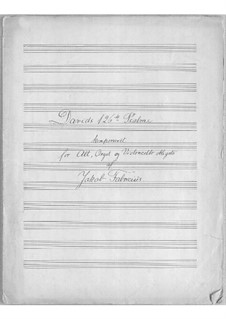 Davids 126de Psalme
komponeret
for Alt, Orgel og Violoncello obligato
af
Jakob Fabricius